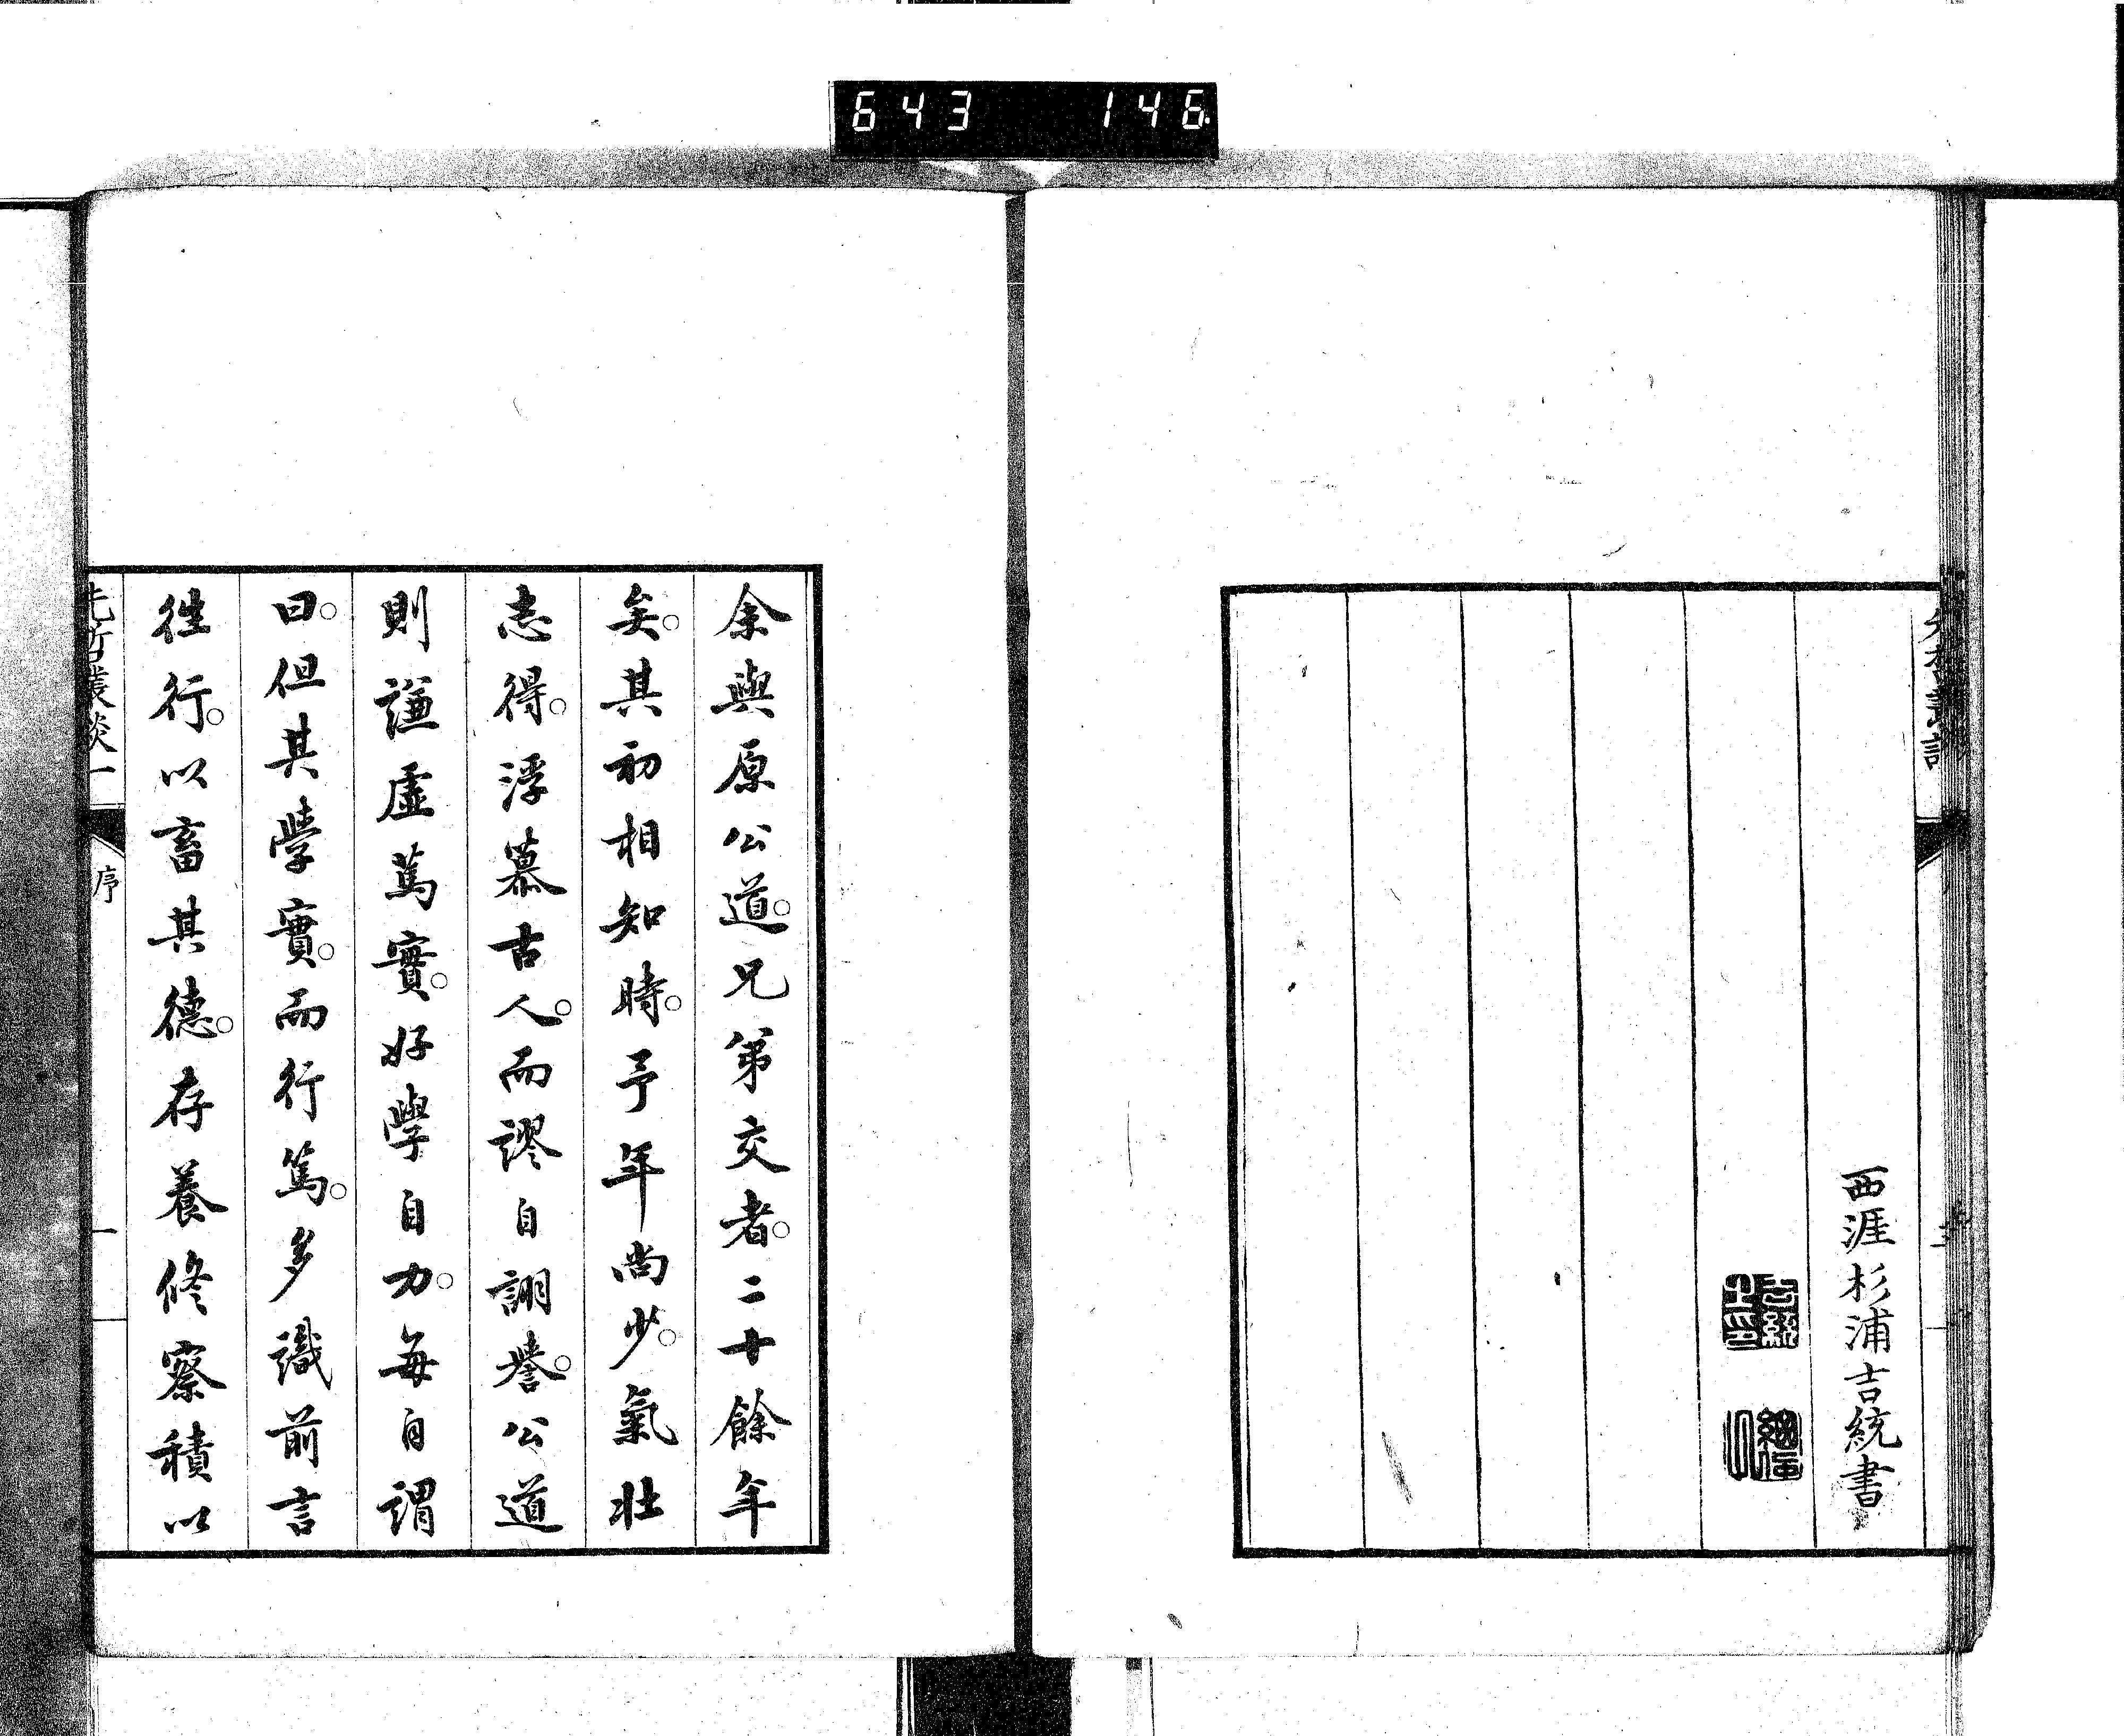 643 146
西涯杉浦吉統書
余與原公道。兄弟交者。二十餘年
矣。其初相知時。予年尚少。氣壯
志得。浮慕古人。而謬自詡譽。公道
則謙虛篤實。好學自力。每自謂
曰。但其學實。而行篤。多識前言
往行。以畜其德。存養修察積以
先哲叢談一
序
一